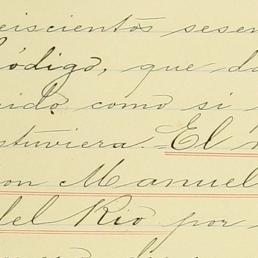 eiscientos sesen
Código, que da
uido como si
stuviera. El
on Manuel
del Rio por